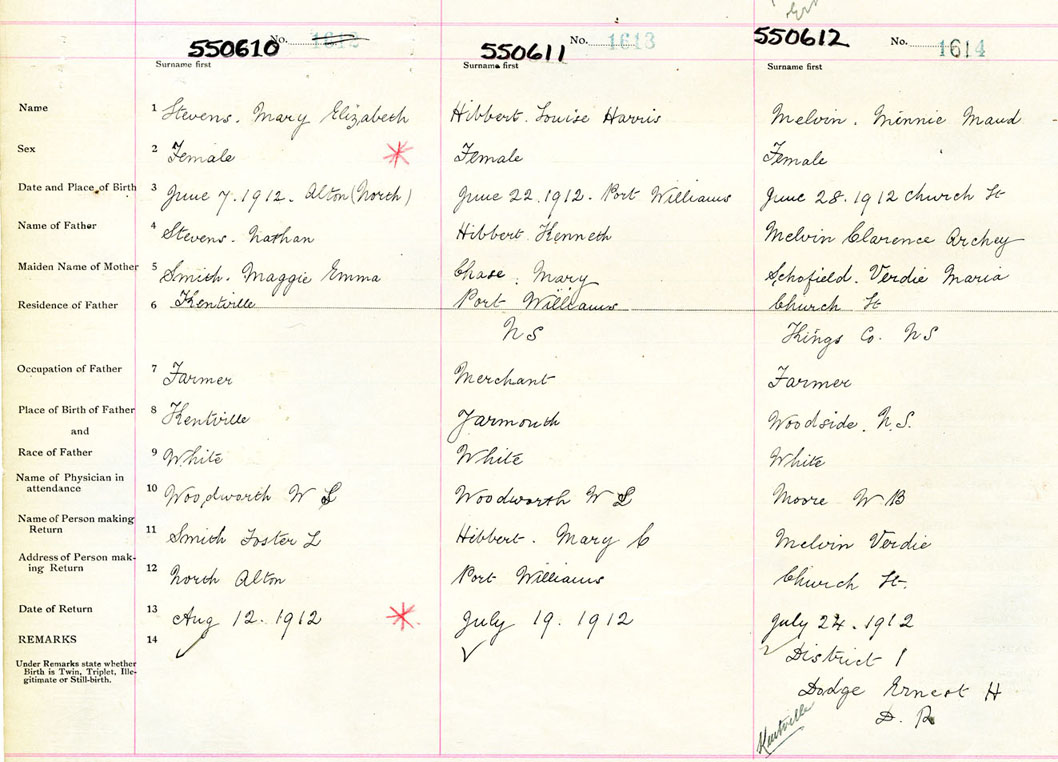 550610 No. 1612 550611 No. 1613 550612 No. 1614
Surname first Surname first Surname first
Name 1 Stevens. Mary Elizabeth Hibbert. Louise Harris Melvin. Minnie Maud
Sex 2 Female Female Female
Date and Place of Birth 3 June 7. 1912. Alton (North) June 22. 1912. Port Williams June 28. 1912 Church St
Name of Father 4 Stevens. Nathan Hibbert Kenneth Melvin Clarence Archey
Maiden Name of Mother 5 Smith. Maggie Emma Chase. Mary Schofield. Verdie Maria
Residence of Father 6 Kentville Port Williams Church St
NS Kings Co. NS
Occupation of Father 7 Farmer Merchant Farmer
Place of Birth of Father 8 Kentville Yarmouth Woodside. N.S.
and
Race of Father 9 White White White
Name of Physician in
attendance 10 Woodworth W S Woodworth W S Moore W B
Name of Person making
Return 11 Smith Foster L Hibbert. Mary C Melvin Verdie
Address of Person mak-
ing Return 12 North Alton Port Williams Church St.
Date of Return 13 Aug 12. 1912 July 19. 1912 July 24. 1912
REMARKS 14 District 1
Under Remarks state whether
Birth is Twin, Triplet, Ille-
gitimate or Still-birth.
Dodge Ernest H
D. R
Kentville